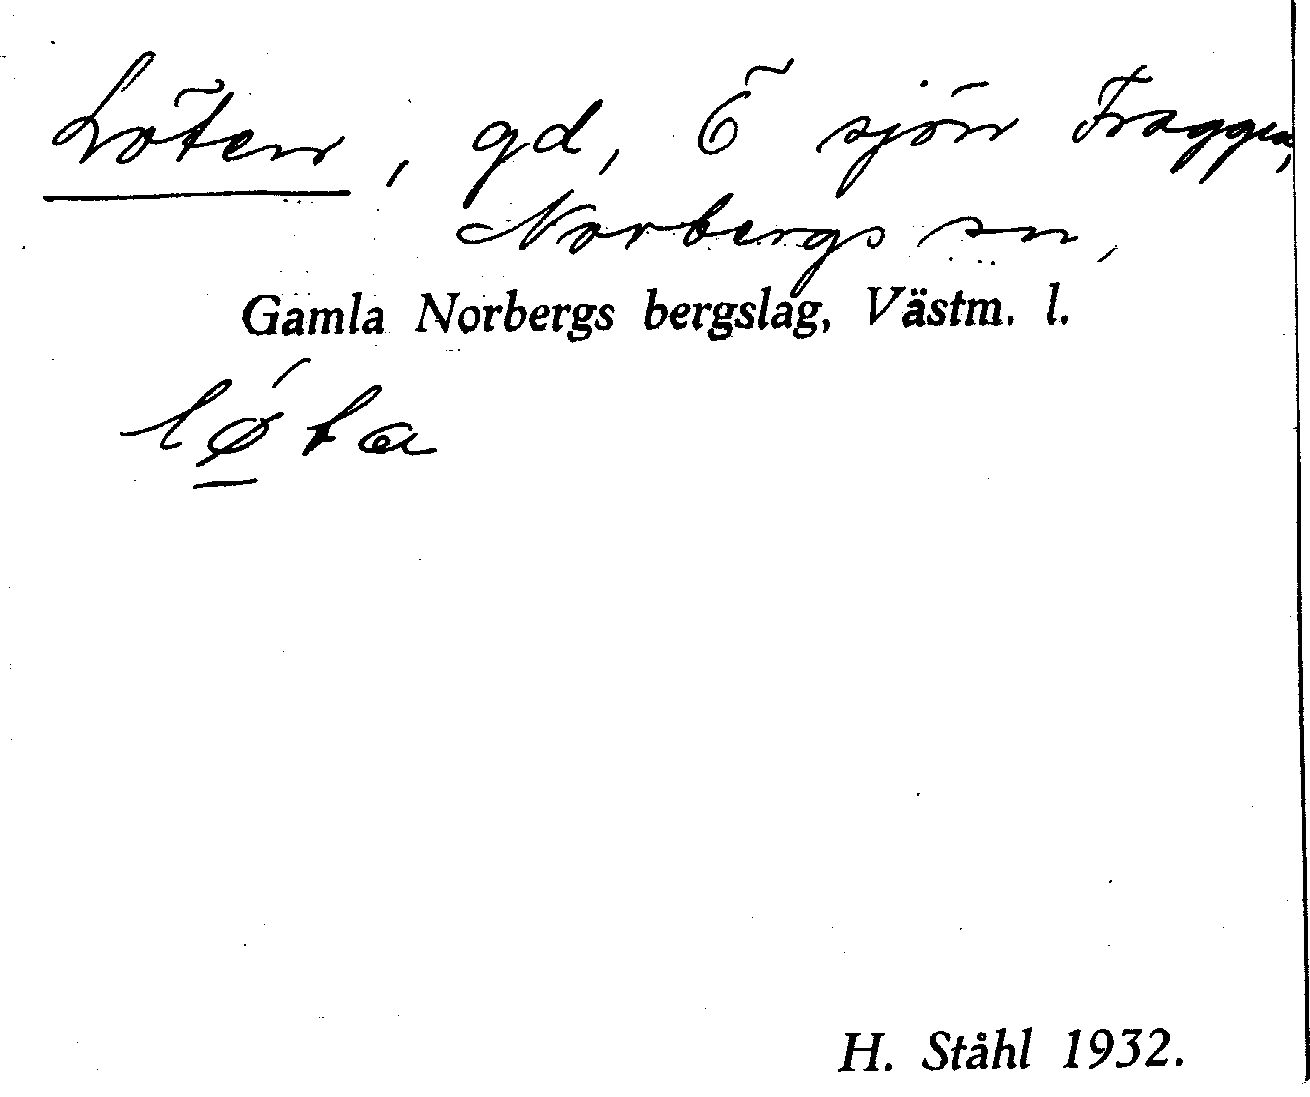 Löten, gd, Ö sjön Fraggen,
Norbergs sn,
Gamla Norbergs bergslag, Västm. l.
lǿ̱ta
H. Ståhl 1932.